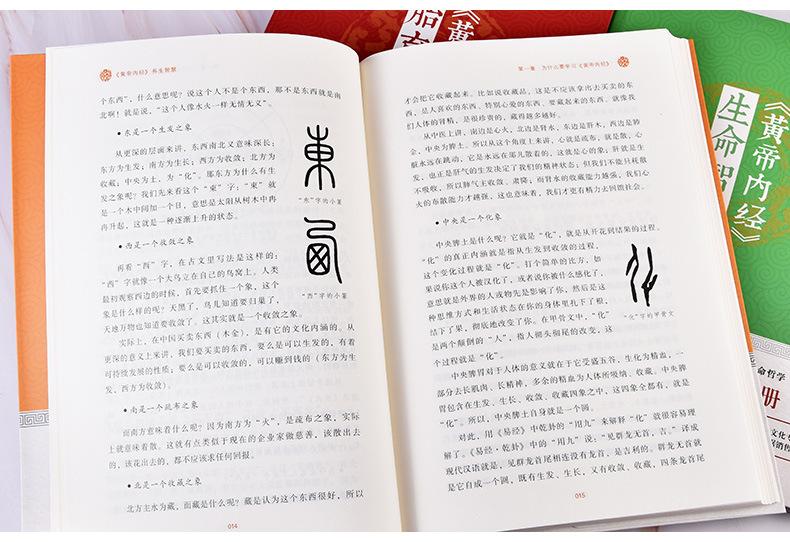 《黄帝内经》养生智慧
个东西”，什么意思呢？说这个人不是个东西，那不是东西就是南
北啊！就是说，“这个人像水火一样无情无义”。
•东是一个生发之象
从更深的层面来讲，东西南北又意味深长：
东方为生发；南方为生长；西方为收敛；北方为
收藏；中央为土，为“化”。那东方为什么有生
发之象呢？我们先来看这个“東”字：“東”就
是一个木中间加一个日，意思是太阳从树木中再
再升起，这就是一种逐渐上升的状态。
東
“东”字的小篆
•西是一个收敛之象
再看“西”字，在古文里写法是这样的：
“西”字就像一个大鸟立在自己的鸟窝上。人类
最初观察西边的时候，首先要抓住一个象，这个
象是什么样的呢？天黑了，鸟儿知道要归巢了，
天地万物也知道要收敛了。这其实就是一个收敛之象。
西
“西”字的小篆
实际上，在中国买卖东西（木金），是有它的文化内涵的。从
更深的意义上来讲，我们要买卖的东西，要么是可以生发的，有着
可持续发展的性质；要么是可以收敛的，可以赚到钱的（东方为生
发，西方为收敛）。
•南是一个疏布之象
而南方意味着什么呢？因为南方为“火”，是疏布之象，实际
上就意味着散。这就有点类似于现在的企业家做慈善，该散出去
的，该花出去的，都不应该求任何回报。
•北是一个收藏之象
北方主水为藏，而藏是什么呢？藏是认为这个东西很好，所以
014
第一章 为什么要学习《黄帝内经》
才会把它收藏起来。比如说收藏品，这是不应该拿出去买卖的东
西，是人喜欢的东西、特别心爱的东西，要藏起来的东西，就像我
们人体的肾精，是很珍贵的，藏得越多越好。
从中医上讲，南边是心火，北边是肾水，东边是肝木，西边是肺
金，中央为脾土。所以从这个角度上来讲，心就是疏布，就是散，心
脏永远在跳动，它是永远在那儿散着的，这就是心的象；肝就是生
发，也正是肝气的生发决定了我们的精神状态；但我们不能只耗散
不吸收，所以肺气主收敛、肃降；而肾水的收藏能力越强，我们心
火的布散能力才越强，这也意味着，我们才更有精力去回馈社会。
•中央是一个化象
中央脾土是什么呢？它就是“化”，就是从开花到结果的过程。
“化”的真正内涵就是指从生发到收敛的过程，
这个变化过程就是“化”。打个简单的比方，如
果说你这个人被汉化了，或者说你被什么感化了，
意思就是外界的人或物先是影响了你，然后是这
种思维方式和生活状态在你的身体里扎下了根，
结下了果，彻底地改变了你。在甲骨文中，“化”
是两个颠倒的“人”，指人掷头倒尾的改变，这
个过程就是“化”。
化
“化”字的甲骨文
中央脾胃对于人体的意义就在于它受盛五谷，生化为精血，一
部分去长肌肉、长精神，多余的精血为人体所吸纳、收藏。中央脾
胃包含在生发、生长、收敛、收藏四象之中，这四象全都有，就是
“化”。所以，中央脾土自身就是一个圆。
对此，用《易经·乾卦》中的“用九”来解释“化”就很容易理
解了。《易经·乾卦》中的“用九”说：“见群龙无首，吉。”译成
现代汉语就是，见群龙首尾相连没有龙首，是吉利的。群龙无首就
是它自成一个圆，既有生发、生长，又有收敛、收藏，四条龙首尾
015
《黄帝
胎育
《黄帝内经》
生命智
命哲学
册